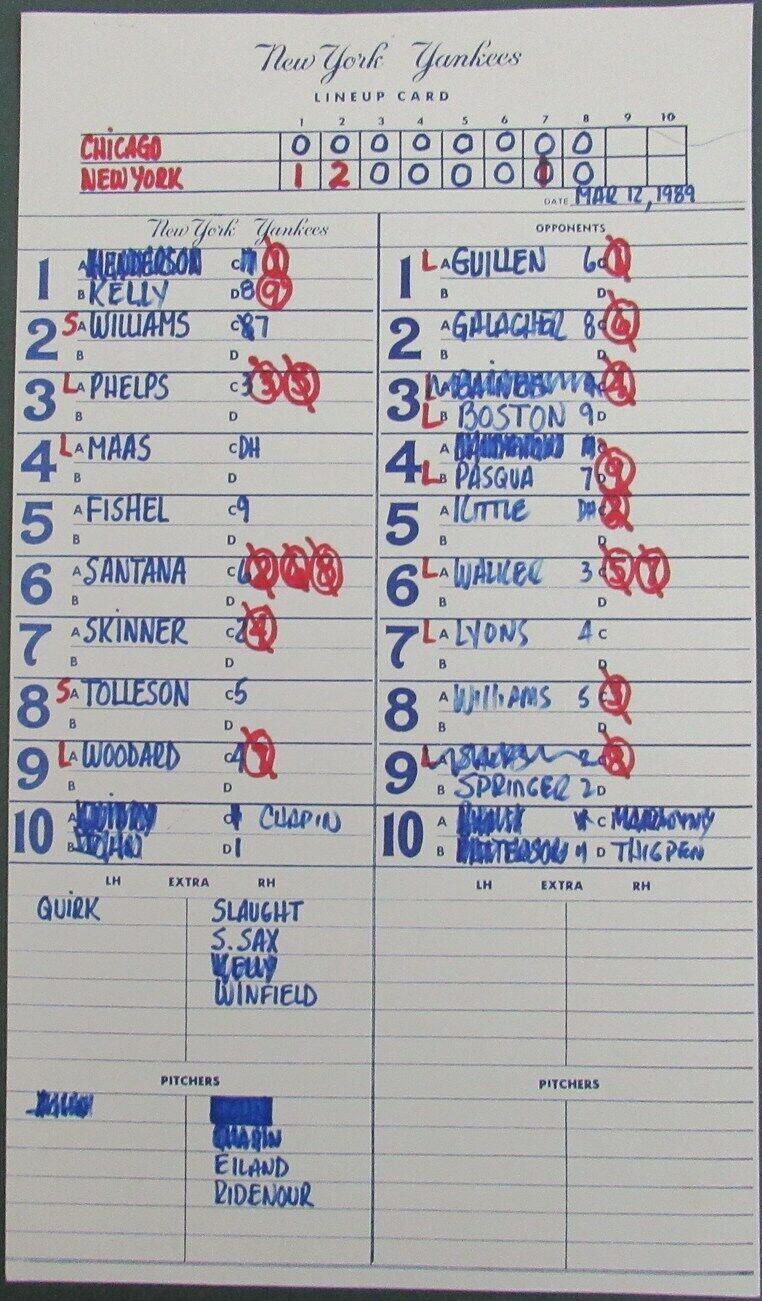 New York Yankees
LINEUP CARD
1 2 3 4 5 6 7 8 9 10
CHICAGO 0 0 0 0 0 0 0 0
NEW YORK 1 2 0 0 0 0 1 0
DATE MAR 12, 1989
New York Yankees
1 A HENDERSON C 1
B KELLY D 8 9
2 S A WILLIAMS C 7
B D
3 L A PHELPS C 3 3 5
B D
4 L A MAAS C DH
B D
5 A FISHEL C 9
B D
6 A SANTANA C 6 2 6 8
B D
7 A SKINNER C 2 4
B D
8 S A TOLLESON C 5
B D
9 L A WOODARD C 4 7
B D
10 A C CHAPIN
B D 1
LH EXTRA RH
QUIRK SLAUGHT
S. SAX
KELLY
WINFIELD
PITCHERS
CHAPIN
EILAND
RIDENOUR
OPPONENTS
1 L A GUILLEN 6 C 1
B D
2 A GALAGHER 8 C 6
B D
3 L A BAINES C 4
L B BOSTON 9 D
4 A C
L B PASQUA 7 D 9
5 A KITTLE DH C 2
B D
6 L A WALKER 3 C 5 7
B D
7 L A LYONS 4 C
B D
8 A WILLIAMS 5 C 3
B D
9 L A 2 C 8
B SPRINGER 2 D
10 A C
B PATTERSON D THIGPEN
LH EXTRA RH
PITCHERS